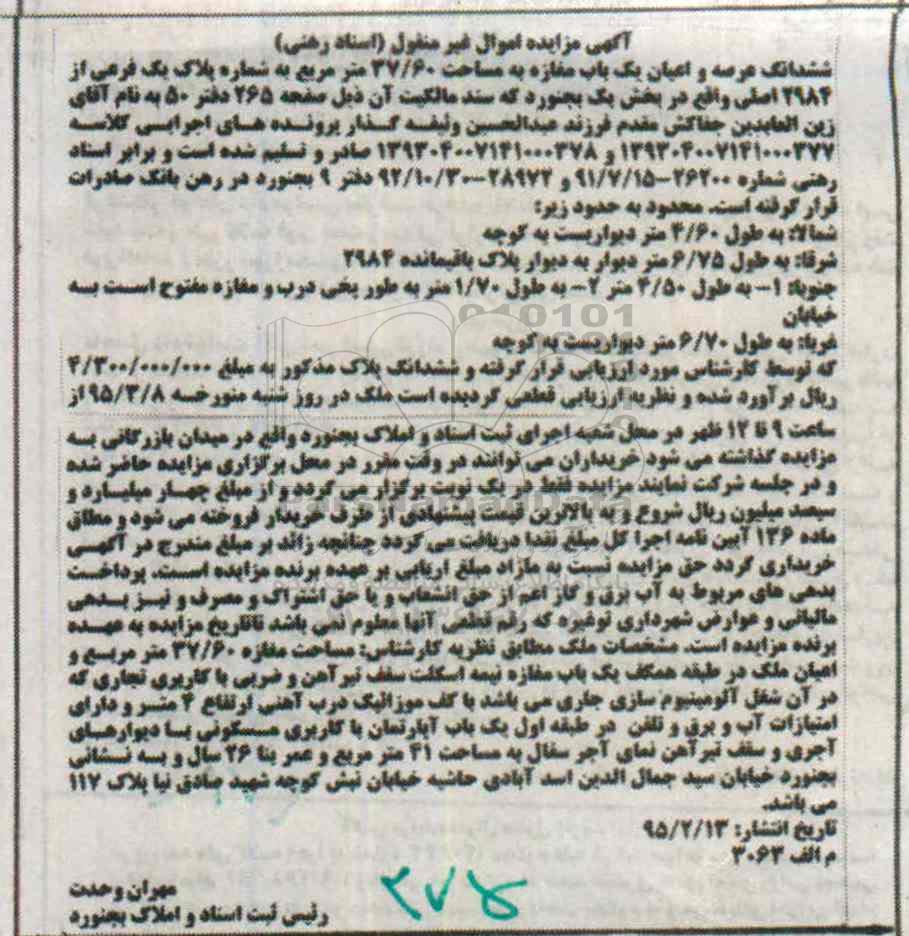 آگهی مزایده اموال غیر منقول (اسناد رهنی)
ششدانگ عرصه و اعیان یک باب مغازه به مساحت ۳۷/۶۰ متر مربع به شماره پلاک یک فرعی از
۲۹۸۴ اصلی واقع در بخش یک بجنورد که سند مالکیت آن ذیل صفحه ۲۶۵ دفتر ۵۰ به نام آقای
زین العابدین جفاکش مقدم فرزند عبدالحسین وثیقه گذار پرونده های اجرایی کلاسه
۱۳۹۳۰۴۰۰۷۱۴۱۰۰۰۳۷۷ و ۱۳۹۳۰۴۰۰۷۱۴۱۰۰۰۳۷۸ صادر و تسلیم شده است و برابر اسناد
رهنی شماره ۲۶۲۰۰-۹۱/۷/۱۵ و ۲۸۹۷۲-۹۲/۱۰/۳۰ دفتر ۹ بجنورد در رهن بانک صادرات
قرار گرفته است. محدود به حدود زیر:
شمالا: به طول ۴/۶۰ متر دیواریست به کوچه
شرقا: به طول ۶/۷۵ متر دیوار به دیوار پلاک باقیمانده ۲۹۸۴
جنوبا: ۱- به طول ۴/۵۰ متر ۲- به طول ۱/۷۰ متر به طور پخی درب و مغازه مفتوح است به
خیابان
غربا: به طول ۶/۷۰ متر دیواریست به کوچه
که توسط کارشناس مورد ارزیابی قرار گرفته و ششدانگ پلاک مذکور به مبلغ ۴/۳۰۰/۰۰۰/۰۰۰
ریال برآورد شده و نظریه ارزیابی قطعی گردیده است ملک در روز شنبه مورخه ۹۵/۳/۸ از
ساعت ۹ تا ۱۲ ظهر در محل شعبه اجرای ثبت اسناد و املاک بجنورد واقع در میدان بازرگانی به
مزایده گذاشته می شود خریداران می توانند در وقت مقرر در محل برگزاری مزایده حاضر شده
و در جلسه شرکت نمایند مزایده فقط در یک نوبت برگزار می گردد و از مبلغ چهار میلیارد و
سیصد میلیون ریال شروع و به بالاترین قیمت پیشنهادی از طرف خریدار فروخته می شود و مطابق
ماده ۱۳۶ آیین نامه اجرا کل مبلغ نقدا دریافت می گردد چنانچه زائد بر مبلغ مندرج در آگهی
خریداری گردد حق مزایده نسبت به مازاد مبلغ اریابی بر عهده برنده مزایده است. پرداخت
بدهی های مربوط به آب برق و گاز اعم از حق انشعاب و یا حق اشتراک و مصرف و نیز بدهی
مالیاتی و عوارض شهرداری نوغیره که رقم قطعی آنها معلوم نمی باشد تاتاریخ مزایده به عهده
برنده مزایده است. مشخصات ملک مطابق نظریه کارشناس: مساحت مغازه ۳۷/۶۰ متر مربع و
اعیان ملک در طبقه همکف یک باب مغازه نیمه اسکلت سقف تیرآهن و ضربی با کاربری تجاری که
در آن شغل آلومینیوم سازی جاری می باشد با کف موزائیک درب آهنی ارتفاع ۴ متر و دارای
امتیازات آب و برق و تلفن در طبقه اول یک باب آپارتمان با کاربری مسکونی با دیوارهای
آجری و سقف تیرآهن نمای آجر سفال به مساحت ۴۱ متر مربع و عمر بنا ۲۶ سال و به نشانی
بجنورد خیابان سید جمال الدین اسد آبادی حاشیه خیابان نبش کوچه شهید صادق نیا پلاک ۱۱۷
می باشد.
تاریخ انتشار: ۹۵/۲/۱۳
م الف ۳۰۶۳
مهران وحدت
رئیس ثبت اسناد و املاک بجنورد